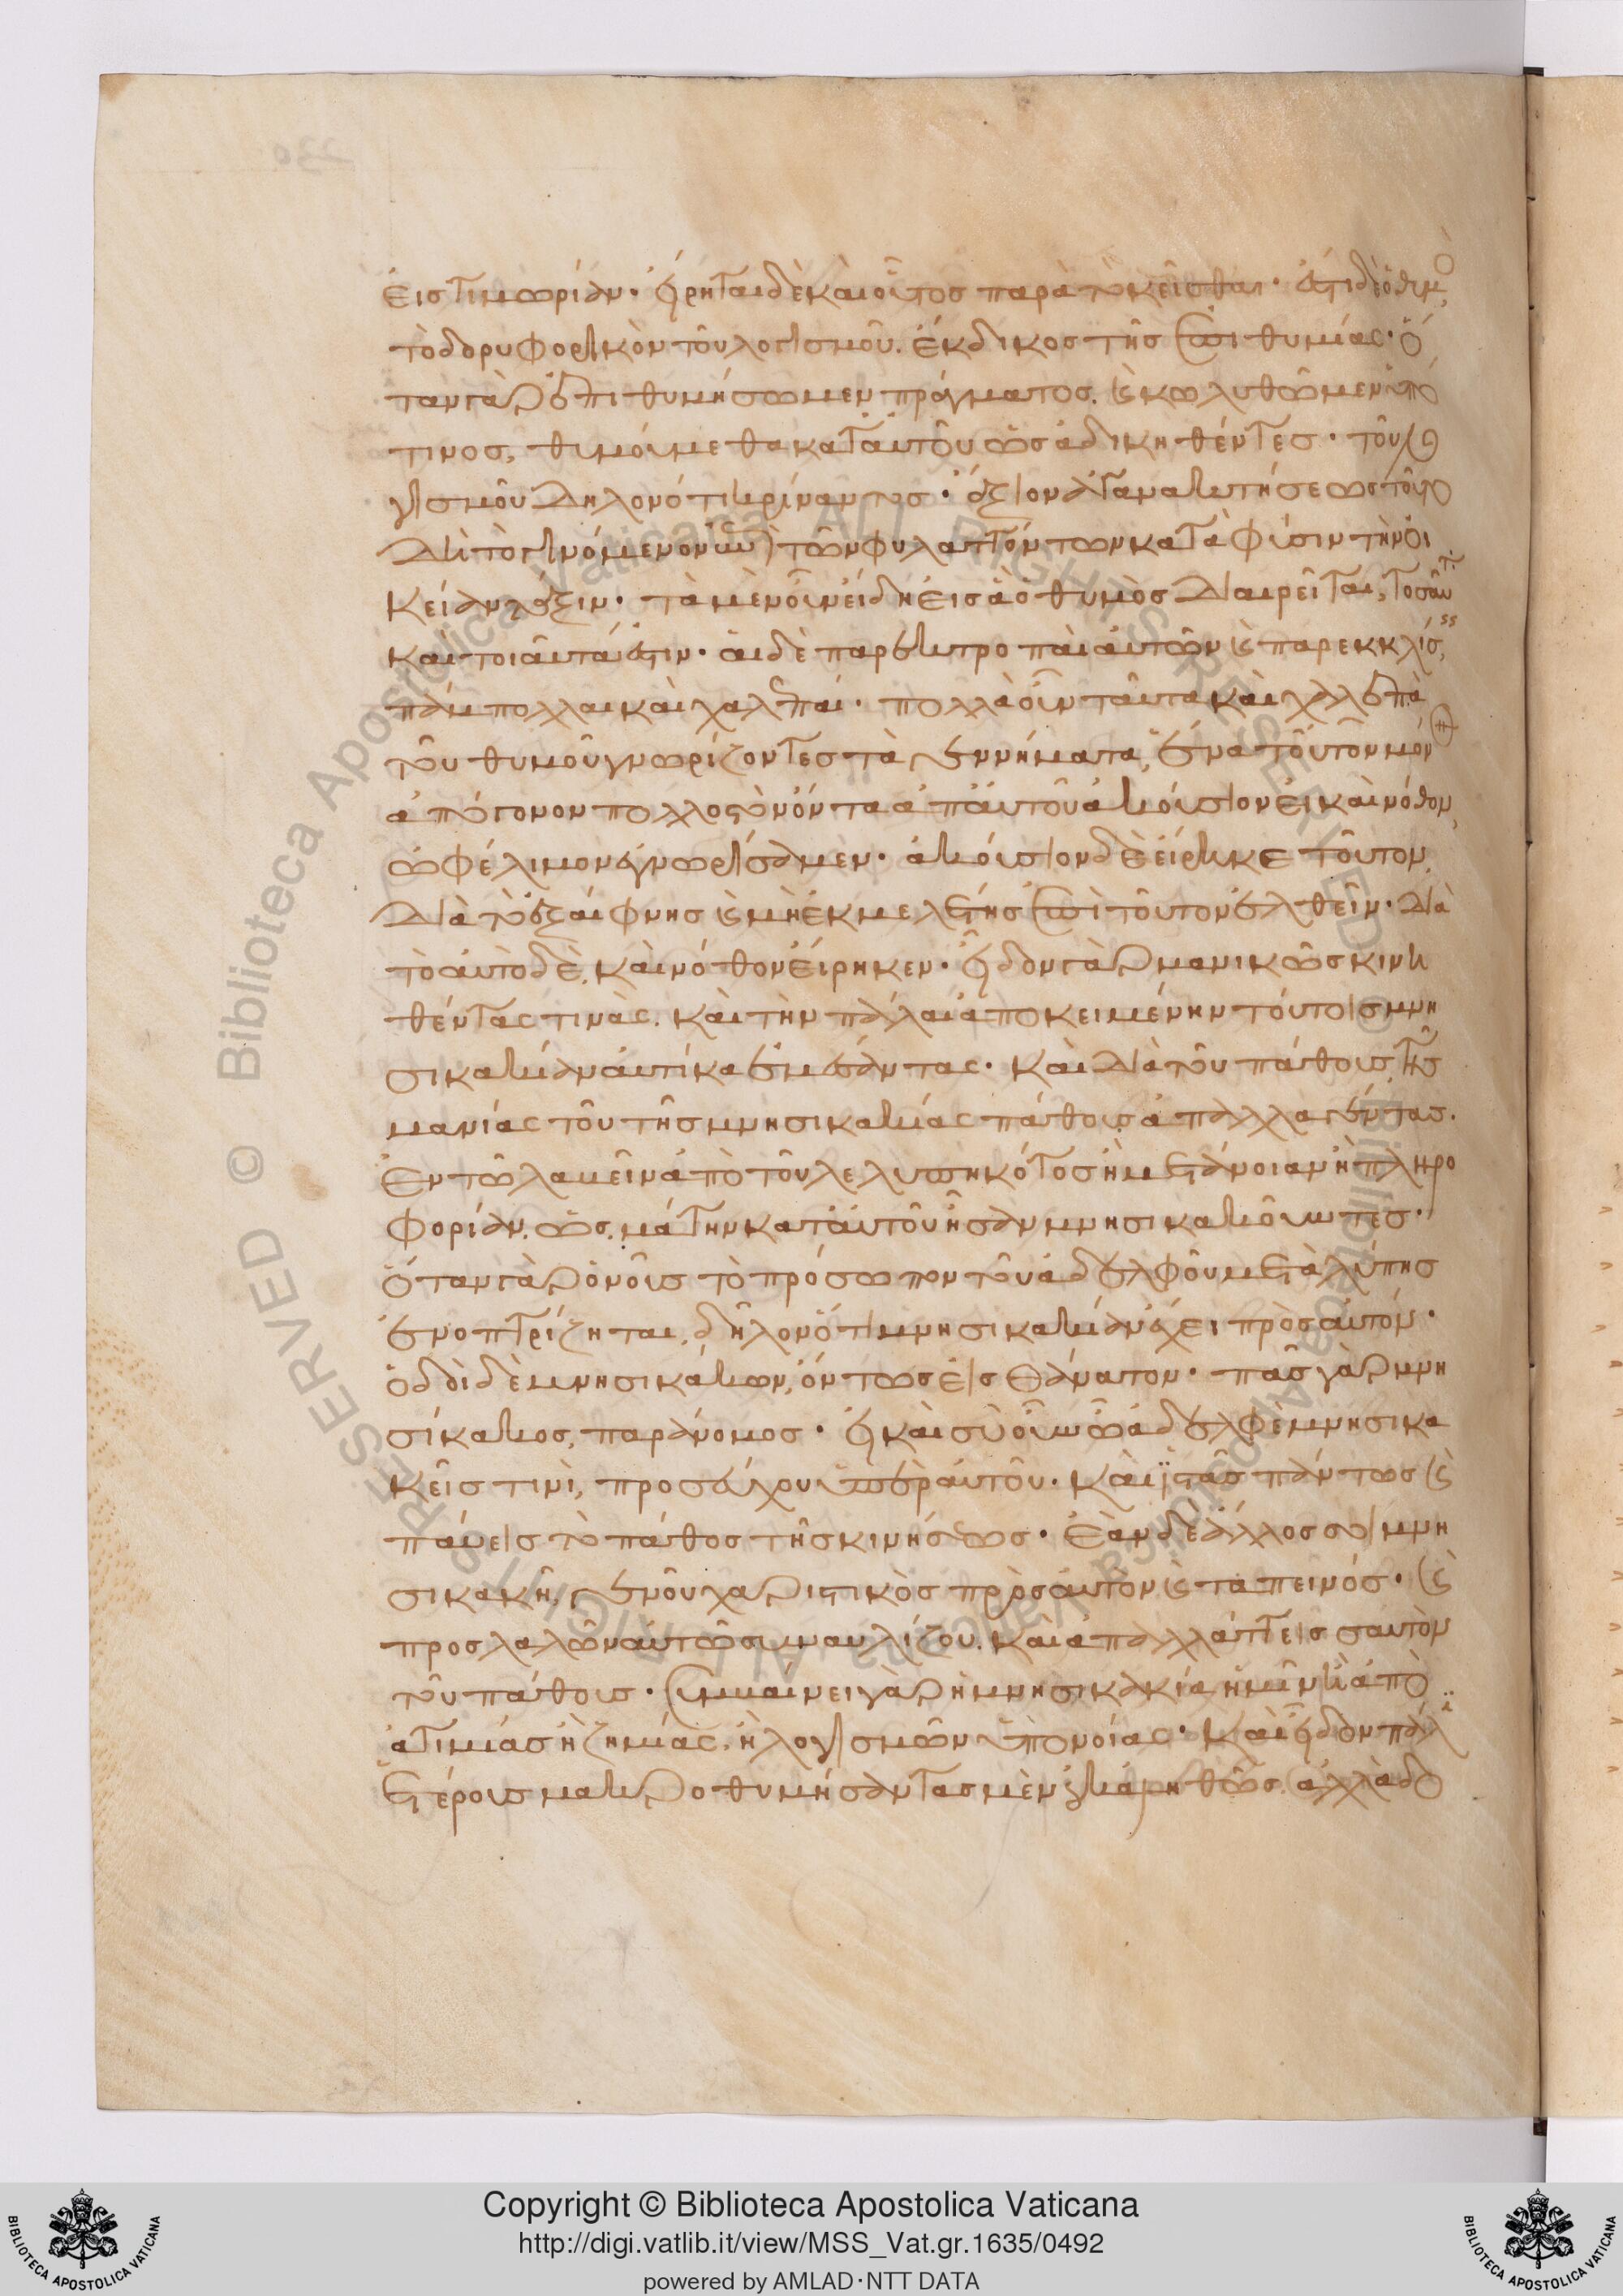 εἰς τιμωρίαν· εἴρηται δὲ καὶ οὗτος παρὰ τὸ κεῖσθαι· ἔστι δὲ ὁ θυμὸ
τὸ δορυφορικὸν τοῦ λογισμοῦ. ἔκδικος τῆς ἐπιθυμίας· ὅ
ταν γὰρ ἐπιθυμήσωμεν πράγματος, καὶ κωλυθῶμεν ὑπό
τινος, θυμούμεθα κατ' αὐτοῦ ὡς ἀδικηθέντες· τοῦ λο
γισμοῦ δηλονότι κρίναντος· ἄξιον
διὰ τὸ γινόμενον τῶν φυλαττόντων κατὰ φύσιν τὴν οἰ
κείαν τάξιν· τὰ μὲν οὖν εἴδη εἰς ἃ ὁ θυμὸς διαιρεῖται, τοσαῦτ
καὶ τοιαῦτά ἐστιν· αἱ δὲ παρεκτροπαὶ αὐτῶν καὶ παρεκκλίσ
πάμπολλαι καὶ χαλεπαί· πολλὰ οὖν ταῦτα καὶ χαλεπὰ
τοῦ θυμοῦ γνωρίζοντες τὰ γεννήματα, ἕνα τοῦτον μόν
ἀπόγονον πολλοστὸν ὄντα ἀπ' αὐτοῦ ἀκούσιον εἰ καὶ νόθον,
ὠφέλιμον ἐγνωρίσαμεν· ἀκούσιον δὲ εἴρηκε τοῦτον,
διὰ τὸ ἐξαίφνης καὶ μὴ ἐκ μελέτης ἐπὶ τοῦτον ἐλθεῖν· διὰ
τὸ αὐτὸ δὲ, καὶ νόθον εἴρηκεν· εἶδον γὰρ μανικῶς κινη
θέντας τινάς. καὶ τὴν πάλαι ἀποκειμένην τούτοις μνη
σικακίαν αὐτίκα ἐμέσαντας· καὶ διὰ τοῦ πάθους τῆς
μανίας τοῦ τῆς μνησικακίας πάθους ἀπαλλαγέντας.
ἐν τῷ λαβεῖν ἀπὸ τοῦ λελυπηκότος ἢ μετάνοιαν ἢ πληρο
φορίαν. ὡς μάτην κατ' αὐτοῦ ἦσαν μνησικακοῦντες·
ὅταν γὰρ ὁ νοῦς τὸ πρόσωπον τοῦ ἀδελφοῦ μετὰ λύπης
ἐνοπτρίζηται, δῆλον ὅτι μνησικακίαν ἔχει πρὸς αὐτόν·
ὁδοὶ δὲ μνησικάκων, ὄντως εἰς θάνατον· πᾶς γὰρ μνη
σίκακος, παράνομος· εἰ καὶ σὺ οὖν ὦ ἀδελφὲ μνησικα
κεῖς τινὶ, προσεύχου ὑπὲρ αὐτοῦ. καὶ ἱστᾷς πάντως καὶ
παύεις τὸ πάθος τῆς κινήσεως· ἐὰν δὲ ἄλλος σοι μνη
σικακῇ, γενοῦ χαριστικὸς πρὸς αὐτὸν καὶ ταπεινός· καὶ
προσλαλῶν αὐτῷ συναυλίζου. καὶ ἀπαλλάττεις σαυτὸν
τοῦ πάθους· συμβαίνει γὰρ ἡ μνησικακία ἡμῖν ἢ ἀπὸ
ἀτιμίας ἢ ζημίας, ἢ λογισμῶν ὑπονοίας· καὶ εἶδον πάλ
ἑτέρους μακροθυμήσαντας μὲν ἀλλὰ δο